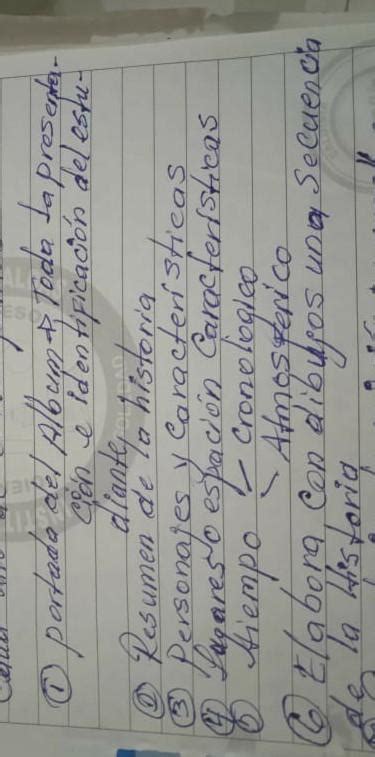 ① portada del Album → Toda la presenta-
ción e identificación del estu-
diante
② Resumen de la historia
③ Personajes y características
④ Lugares o espación Características
⑤ tiempo - Cronologico
- Atmosferico
⑥ Elabora con dibujos una secuencia
de la historia